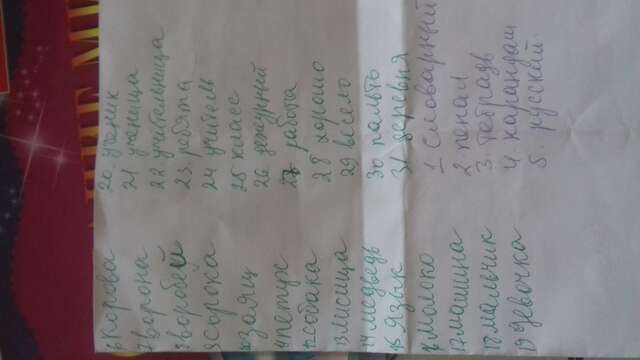 6 корова
7 ворона
8 воробей
9 сорока
10 заяц
11 петух
12 собака
13 лисица
14 медведь
15 язык
16 молоко
17 машина
18 мальчик
19 девочка
20 ученик
21 ученица
22 учительница
23 ребята
24 учитель
25 класс
26 дежурный
27 работа
28 хорошо
29 весело
30 пальто
31 деревня
1 словарный
2. пенал
3. тетрадь
4 карандаш
5. русский